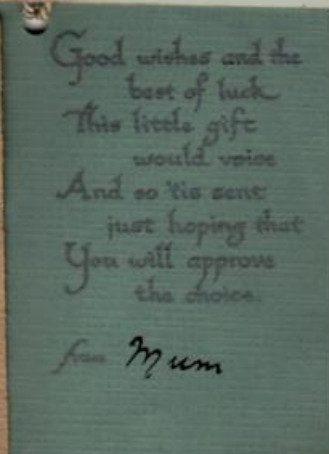 Good wishes and the
best of luck
This little gift
would voice
And so 'tis sent
just hoping that
You will approve
the choice.
from Mum